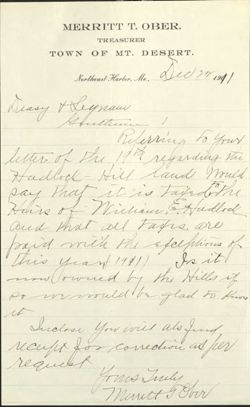 MERRITT T. OBER.
TREASURER
TOWN OF MT. DESERT.
Northeast Harbor, Me., Dec 1911
Deasy & Lynam
Gentlemen!
Referring to your
letter of the 19th regarding the
Hadlock-Hill land would
say that it is taxed to the
Heirs of William E. Hadlock
and that all taxes are
paid with the exceptions of
this year 1911 Is it
now owned by the Hills if
so we would be glad to know
it
Inclose you will also find
receipt for correction as per
request
Yours Truly
Merritt T Ober